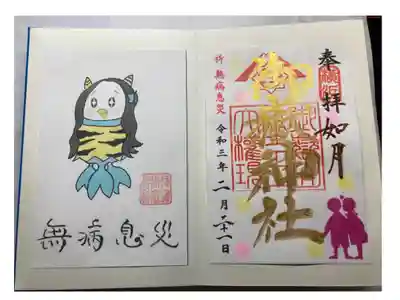 奉拝 如月
神社
令和三年二月二十一日
祈 無病息災
無病息災